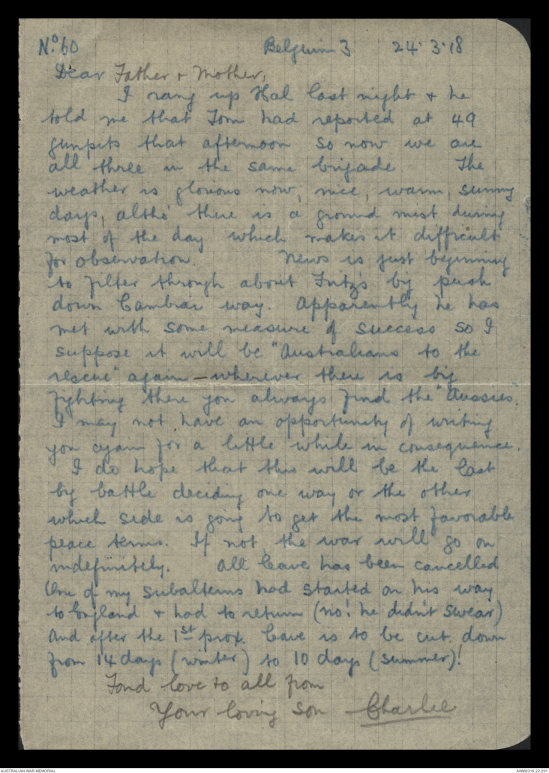 No 60 Belgium 3 24.3.18
Dear Father & Mother,
I rang up Hal last night & he
told me that Tom had reported at 49
gunpits that afternoon so now we are
all three in the same brigade. The
weather is glorious now, nice, warm, sunny
days, altho' there is a ground mist during
most of the day which makes it difficult
for observation. News is just beginning
to filter through about Fritz's big push
down Cambrai way. Apparently he has
met with some measure of success so I
suppose it will be "Australians to the
rescue" again – wherever there is big
fighting there you always find the "Aussies.
I may not have an opportunity of writing
you again for a little while in consequence.
I do hope that this will be the last
big battle deciding one way or the other
which side is going to get the most favorable
peace terms. If not, the war will go on
indefinitely. All leave has been cancelled
One of my subalterns had started on his way
to England & had to return (no! he didn't swear)
And after the 1st prox. leave is to be cut down
from 14 days (winter) to 10 days (summer)!
Fond love to all from
Your loving son Charlie
AUSTRALIAN WAR MEMORIAL